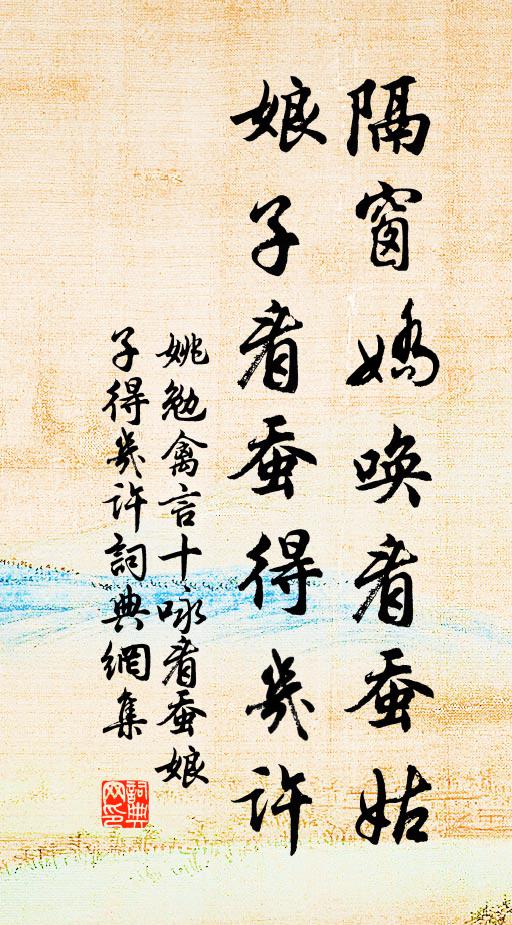 隔窗嬌唤看蚕姑
娘子看蚕得幾许
姚勉禽言十咏看蚕娘
子得幾许詞典網集
詞典网印